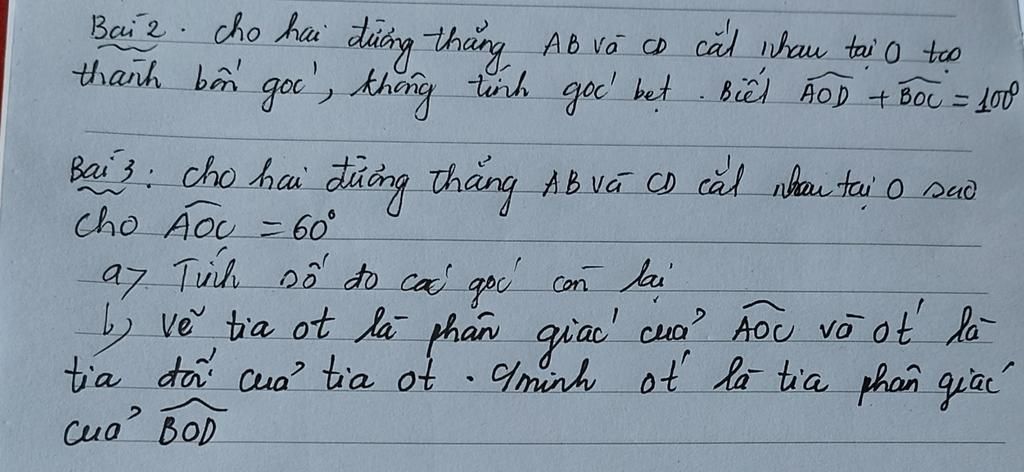 Bài 2. Cho hai đường thẳng AB và CD cắt nhau tại O tạo
thành bốn góc, không tính góc bẹt. Biết AOD + BOC = 100°
Bài 3: Cho hai đường thẳng AB và CD cắt nhau tại O sao
cho AOC = 60°
a, Tính số đo các góc còn lại
b) vẽ tia ot là phân giác của AOC và ot' là
tia đối của tia ot. C/minh ot' là tia phân giác
của BOD